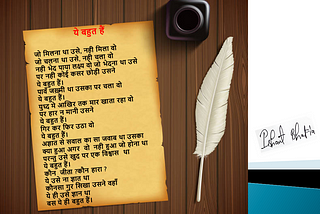 ये बहुत हैं
जो मिलना था उसे, नही मिला वो
जो चलना था उसे, नही चला वो
नही भेद पाया लक्ष्य वो जो भेदना था उसे
पर नही कोई कसर छोड़ी उसने
ये बहुत हैं।
पार्थ जख्मी था उसका पर चला वो
ये बहुत हैं।
युध्द में आखिर तक मार खाता रहा वो
पर हार न मानी उसने
ये बहुत हैं।
गिर कर फिर उठा वो
ये बहुत हैं।
अज्ञात से सवाल का सा जवाब था उसका
क्या हुआ अगर वो नही हुआ जो होना था
परन्तु उसे खुद पर एक विश्वास था
ये बहुत हैं।
कौन जीता ?कौन हारा ?
ये उसे ना ज्ञात था
कौनसा गुर सिखा उसने वहाँ
ये ही उसे ज्ञान था
बस ये ही बहुत हैं।